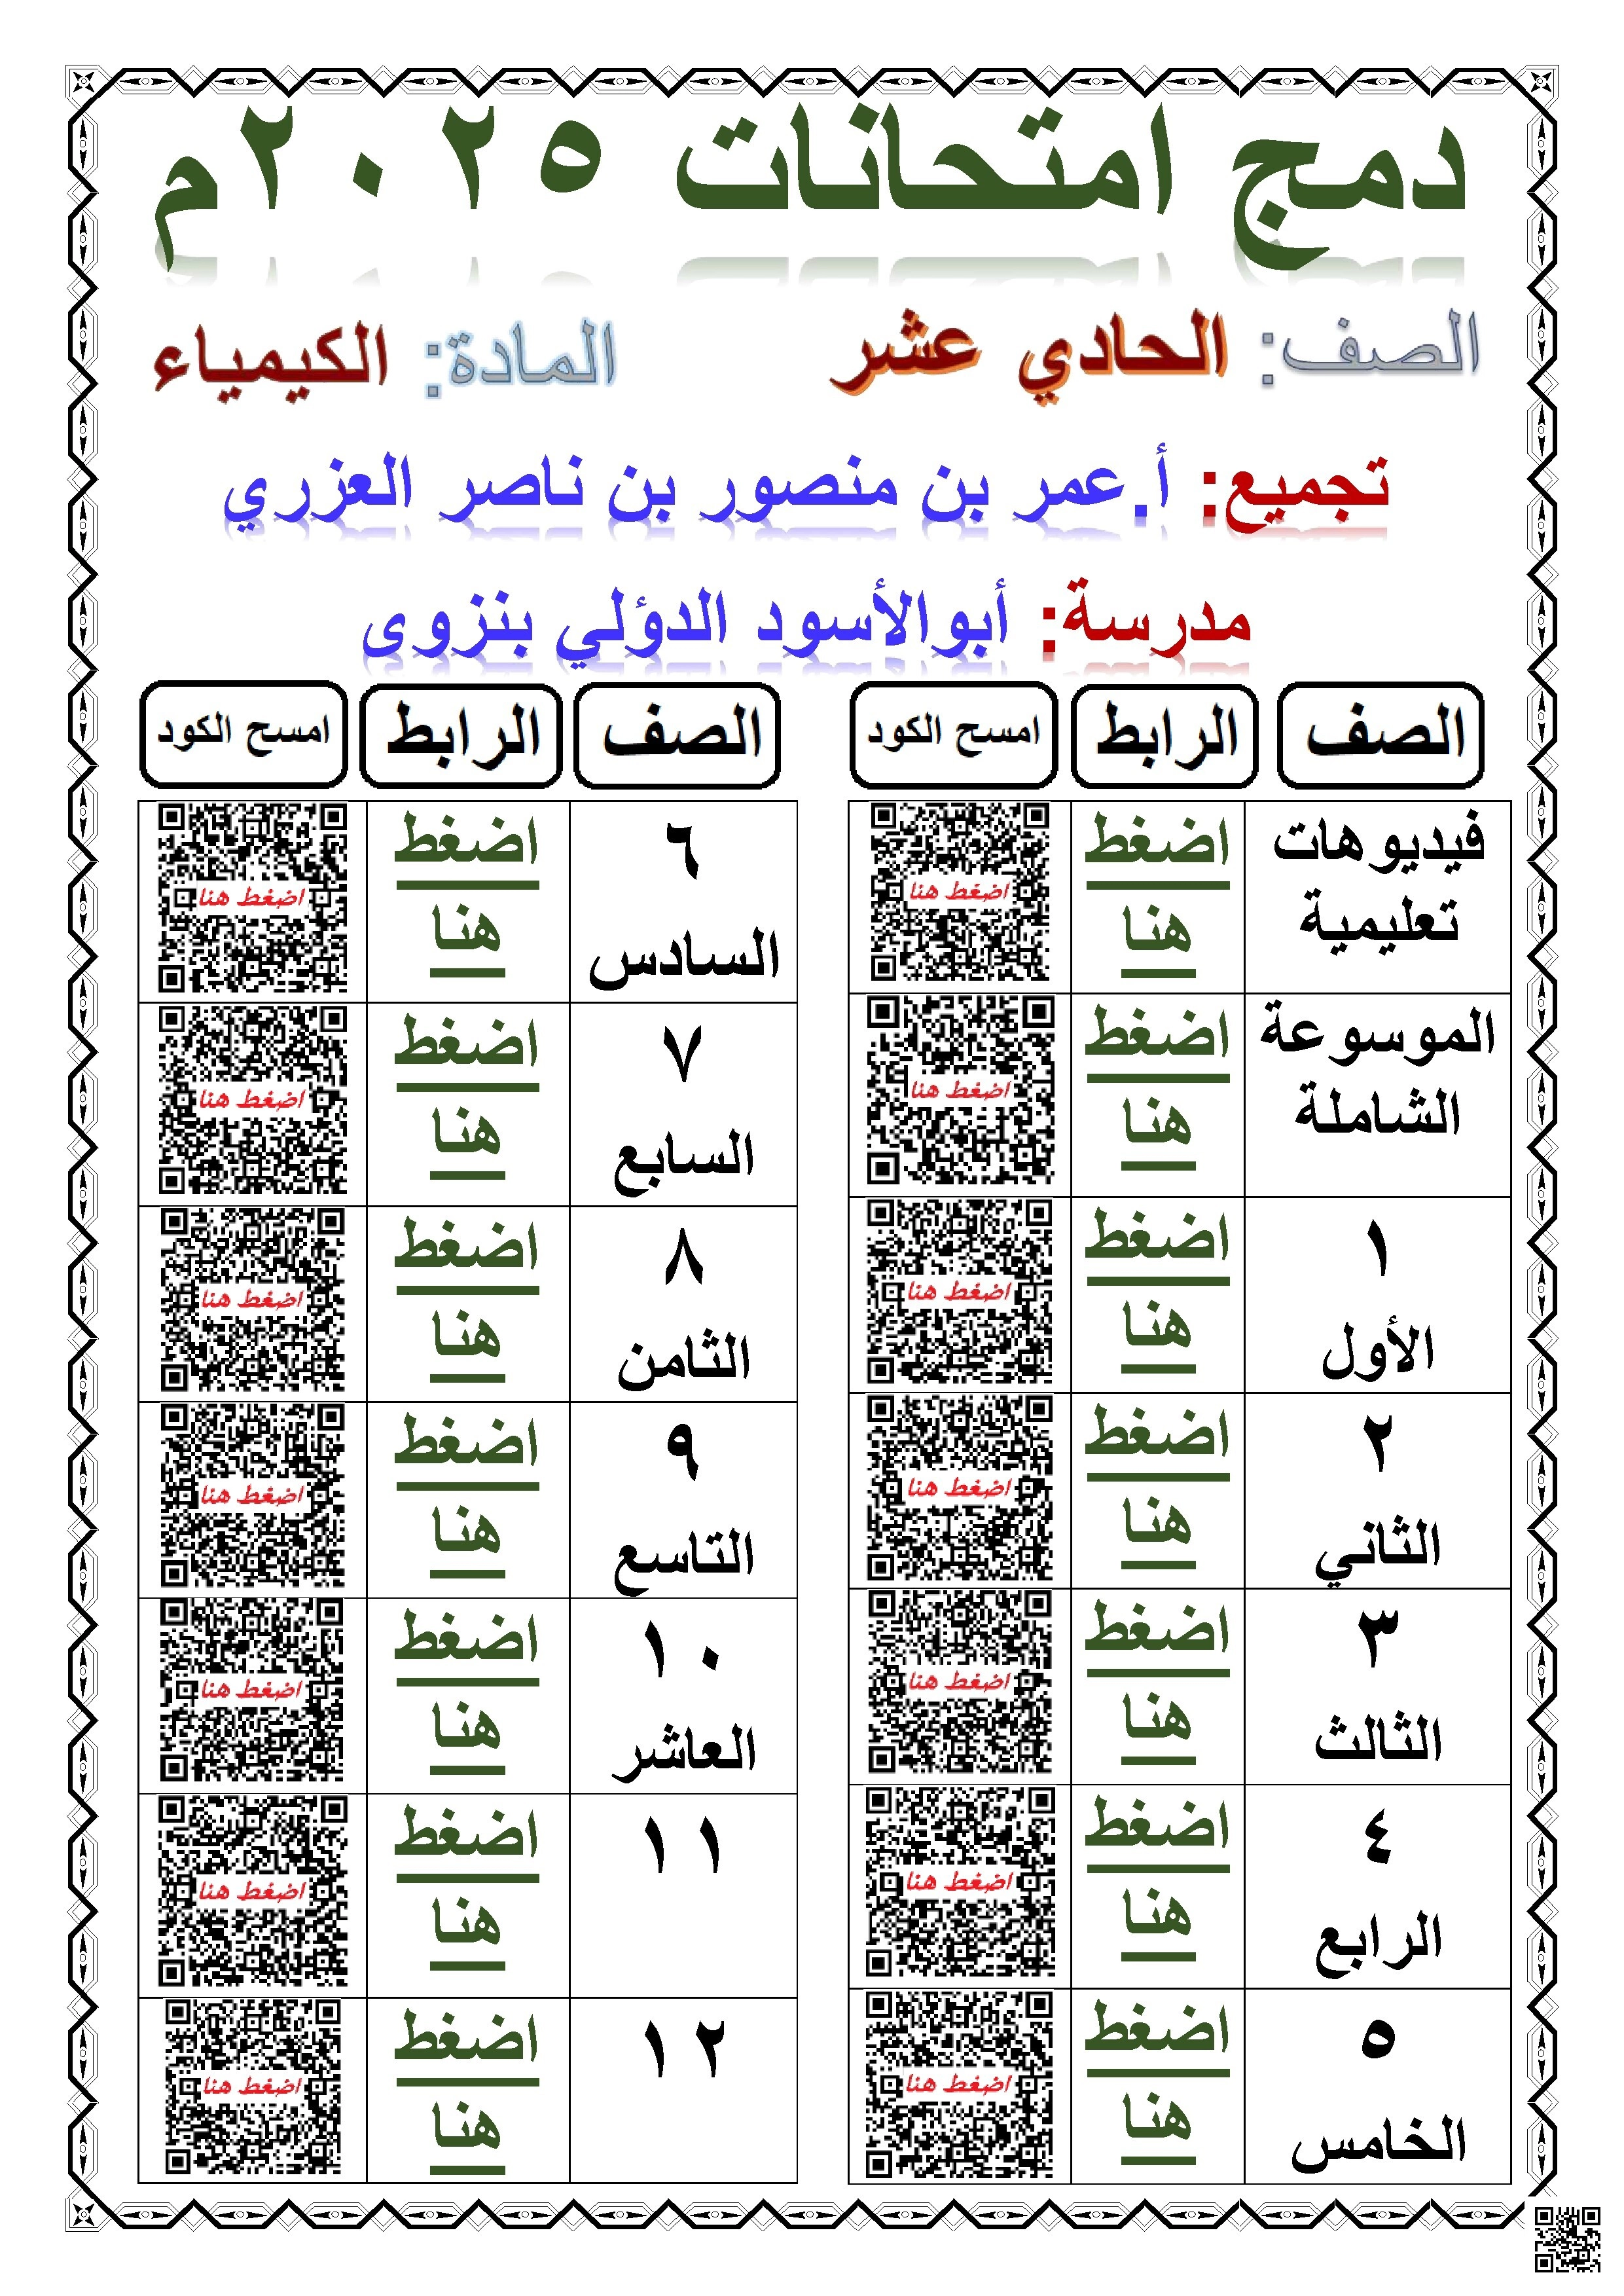 دمج امتحانات ٢٠٢٥م
الصف: الحادي عشر المادة: الكيمياء
تجميع: أ.عمر بن منصور بن ناصر العزري
مدرسة: أبوالأسود الدؤلي بنزوى
الصف الرابط امسح الكود
فيديوهات تعليمية اضغط هنا اضغط هنا
الموسوعة الشاملة اضغط هنا اضغط هنا
١ الأول اضغط هنا اضغط هنا
٢ الثاني اضغط هنا اضغط هنا
٣ الثالث اضغط هنا اضغط هنا
٤ الرابع اضغط هنا اضغط هنا
٥ الخامس اضغط هنا اضغط هنا
الصف الرابط امسح الكود
٦ السادس اضغط هنا اضغط هنا
٧ السابع اضغط هنا اضغط هنا
٨ الثامن اضغط هنا اضغط هنا
٩ التاسع اضغط هنا اضغط هنا
١٠ العاشر اضغط هنا اضغط هنا
١١ اضغط هنا اضغط هنا
١٢ اضغط هنا اضغط هنا